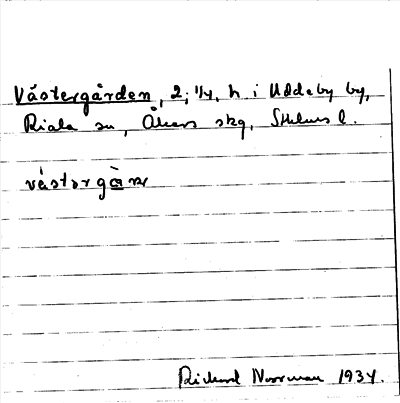 Västergården, 2; 1/4, h i Uddeby by,
Riala sn, Åkers skg, Sthlms l.
västərgɑ̀ɳ
Richard Norrman 1934.